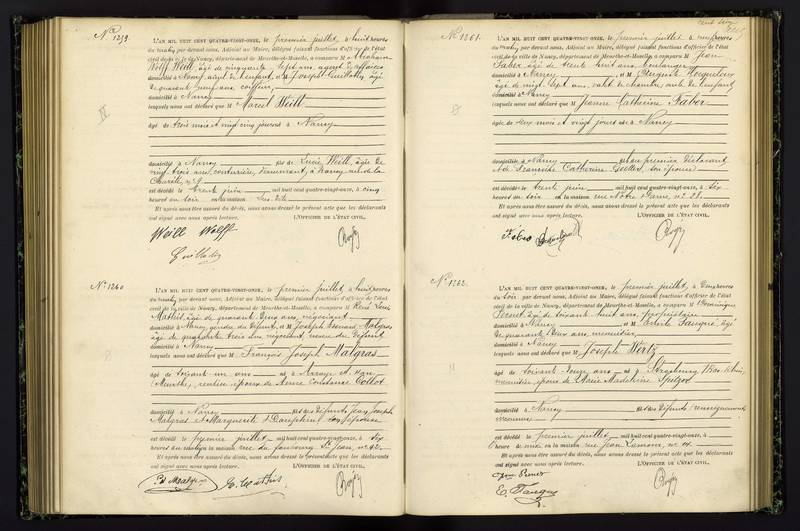 No 1259.
L'AN MIL HUIT CENT QUATRE-VINGT-ONZE, le premier juillet, à huit heures
du matin par devant nous, Adjoint au Maire, délégué faisant fonctions d'officier de l'état
civil de la ville de Nancy, département de Meurthe-et-Moselle, a comparu M Abraham
Wolff Weill, âgé de cinquante sept ans, agent d'affaires
domicilié à Nancy, aïeul de l'enfant, et M Joseph Guillaley, âgé
de quarante neuf ans, coiffeur,
domicilié à Nancy
lesquels nous ont déclaré que M Marcel Weill
âgé de trois mois et vingt cinq jours né à Nancy
domicilié à Nancy fils de Lucie Weill, âgée de
vingt trois ans, couturière, demeurant à Nancy, rue de la
Charité, no 9
est décédé le trente juin mil huit cent quatre-vingt-onze, à cinq
heures du soir en la maison sus-dite
Et après nous être assuré du décès, nous avons dressé le présent acte que les déclarants
ont signé avec nous après lecture. L'OFFICIER DE L'ÉTAT CIVIL,
Weill Wolff
No 1260
L'AN MIL HUIT CENT QUATRE-VINGT-ONZE, le premier juillet, à huit heures
du matin par devant nous, Adjoint au Maire, délégué faisant fonctions d'officier de l'état
civil de la ville de Nancy, département de Meurthe-et-Moselle, a comparu M René Louis
Mathis, âgé de quarante deux ans, négociant
domicilié à Nancy, gendre du défunt, et M Joseph Bernard Malgras
âgé de quarante trois ans, négociant, neveu du défunt
domicilié à Nancy
lesquels nous ont déclaré que M François Joseph Malgras
âgé de soixante un ans né à Arraye et Han
(Meurthe), rentier époux de Anne Constance Collot
domicilié à Nancy fils des défunts Jean Joseph
Malgras et Marguerite son épouse
est décédé le premier juillet mil huit cent quatre-vingt-onze, à six
heures du matin en la maison rue du faubourg St Jean, no 42
Et après nous être assuré du décès, nous avons dressé le présent acte que les déclarants
ont signé avec nous après lecture. L'OFFICIER DE L'ÉTAT CIVIL,
Malgras L. Mathis
No 1261.
L'AN MIL HUIT CENT QUATRE-VINGT-ONZE, le premier juillet, à neuf heures
du matin par devant nous, Adjoint au Maire, délégué faisant fonctions d'officier de l'état
civil de la ville de Nancy, département de Meurthe-et-Moselle, a comparu M Jean
Faber, âgé de trente huit ans, boulanger
domicilié à Nancy et M Auguste
âgé de vingt sept ans, valet de chambre, ami de l'enfant
domicilié à Nancy
lesquels nous ont déclaré que M Jeanne Catherine Faber
âgée de deux mois et vingt jours née à Nancy
domiciliée à Nancy fille du premier déclarant
et de Françoise Catherine son épouse
est décédée le trente juin mil huit cent quatre-vingt-onze, à six
heures du soir en la maison rue Notre Dame, no 28
Et après nous être assuré du décès, nous avons dressé le présent acte que les déclarants
ont signé avec nous après lecture. L'OFFICIER DE L'ÉTAT CIVIL,
Faber
No 1262.
L'AN MIL HUIT CENT QUATRE-VINGT-ONZE, le premier juillet, à deux heures
du soir par devant nous, Adjoint au Maire, délégué faisant fonctions d'officier de l'état
civil de la ville de Nancy, département de Meurthe-et-Moselle, a comparu M Dominique
âgé de soixante huit ans, propriétaire
domicilié à Nancy et M âgé
de quarante deux ans, menuisier
domicilié à Nancy
lesquels nous ont déclaré que M Joseph Wirtz
âgé de soixante douze ans né à Strasbourg (Bas-Rhin),
menuisier, époux de Marie Madeleine
domicilié à Nancy fils des défunts (renseignements
inconnus)
est décédé le premier juillet mil huit cent quatre-vingt-onze, à
heures de midi en la maison rue Jean Lamour, no 14
Et après nous être assuré du décès, nous avons dressé le présent acte que les déclarants
ont signé avec nous après lecture. L'OFFICIER DE L'ÉTAT CIVIL,